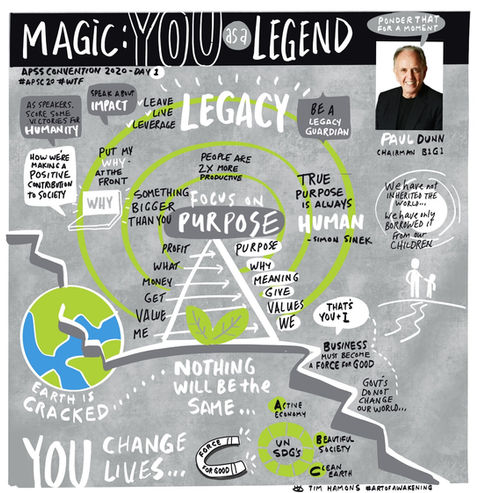 MAGIC: YOU as a LEGEND
PONDER THAT
FOR A MOMENT
APSS CONVENTION 2020 - DAY 1
#APSC20 #WTF
PAUL DUNN
CHAIRMAN B1G1
AS SPEAKERS.
SCORE SOME
VICTORIES FOR
HUMANITY
SPEAK ABOUT
IMPACT
LEAVE
LIVE
LEVERAGE
LEGACY
BE A
LEGACY
GUARDIAN
HOW WE'RE
MAKING A
POSITIVE
CONTRIBUTION
TO SOCIETY
PUT MY
WHY
AT THE
FRONT
WHY
PEOPLE ARE
2X MORE
PRODUCTIVE
SOMETHING
BIGGER
THAN YOU
FOCUS ON
PURPOSE
TRUE
PURPOSE
IS ALWAYS
HUMAN
- SIMON SINEK
We have not
INHERITED THE
WORLD...
We have only
BORROWED it
from our
CHILDREN
PROFIT PURPOSE
WHAT WHY
MONEY MEANING
GET GIVE
VALUE VALUES
ME WE
THAT'S
YOU + I
BUSINESS
MUST BECOME
A FORCE FOR GOOD
GOVT'S
DO NOT
CHANGE
OUR WORLD...
EARTH IS
CRACKED
NOTHING
WILL BE the
SAME...
YOU CHANGE
LIVES...
FORCE
FOR GOOD
UN
SDG's
ACTIVE
ECONOMY
BEAUTIFUL
SOCIETY
CLEAN
EARTH
TIM HAMONS #ARTOFAWAKENING